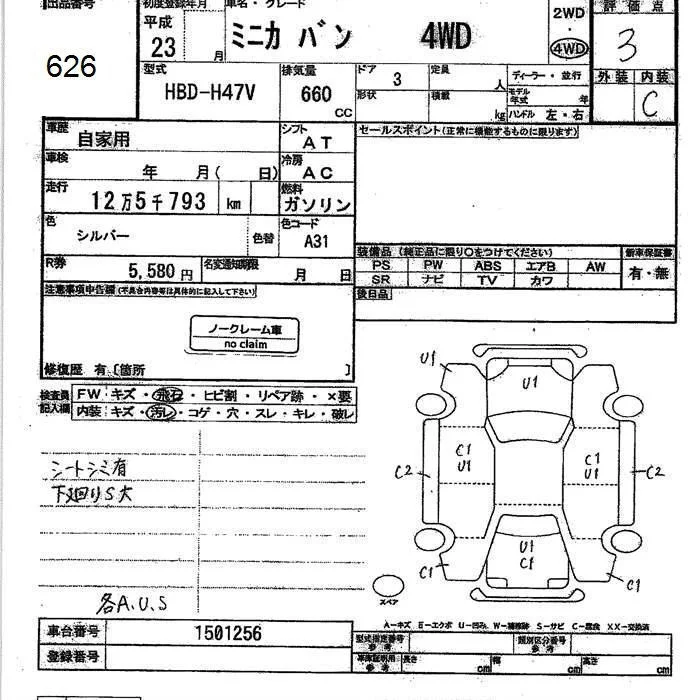 出品番号
初度登録年月 車名・グレード 評価点
626
平成 23 月 ミニカ バン 4WD 2WD ・ 4WD 3
型式 HBD-H47V 排気量 660 CC ドア 3 定員 人 ディーラー・並行 外装 内装
形状 積載 kg モデル年式 年 C
ハンドル 左・右
車歴 自家用 シフト AT セールスポイント(正常に機能するものに限ります)
車検 年 月( 日) 冷房 AC
走行 12万5千793 km 燃料 ガソリン
色 シルバー 色替 色コード A31
装備品(純正品に限り○をつけてください) 新車保証書
PS PW ABS エアB AW 有・無
SR ナビ TV カワ
R券 5,580円 名変通知期限 月 日
後日品
注意事項申告欄(不具合内容等は具体的に記入して下さい)
ノークレーム車
no claim
修復歴 有〔箇所 〕
検査員記入欄 FW キズ・飛石・ヒビ割・リペア跡・×要
内装 キズ・汚れ・コゲ・穴・スレ・キレ・破レ
シートシミ有
下廻りS大
各A.U.S
U1
U1
C1
U1
C1
U1
C2
C2
U1
C1
C1
C1
スペア
A―キズ E―エクボ U―凹み W―補修跡 S―サビ C―腐食 XX―交換済
車台番号 1501256 型式指定番号 参考 類別区分番号 参考
登録番号 車庫証明用 参考 長さ cm 幅 cm 高さ cm